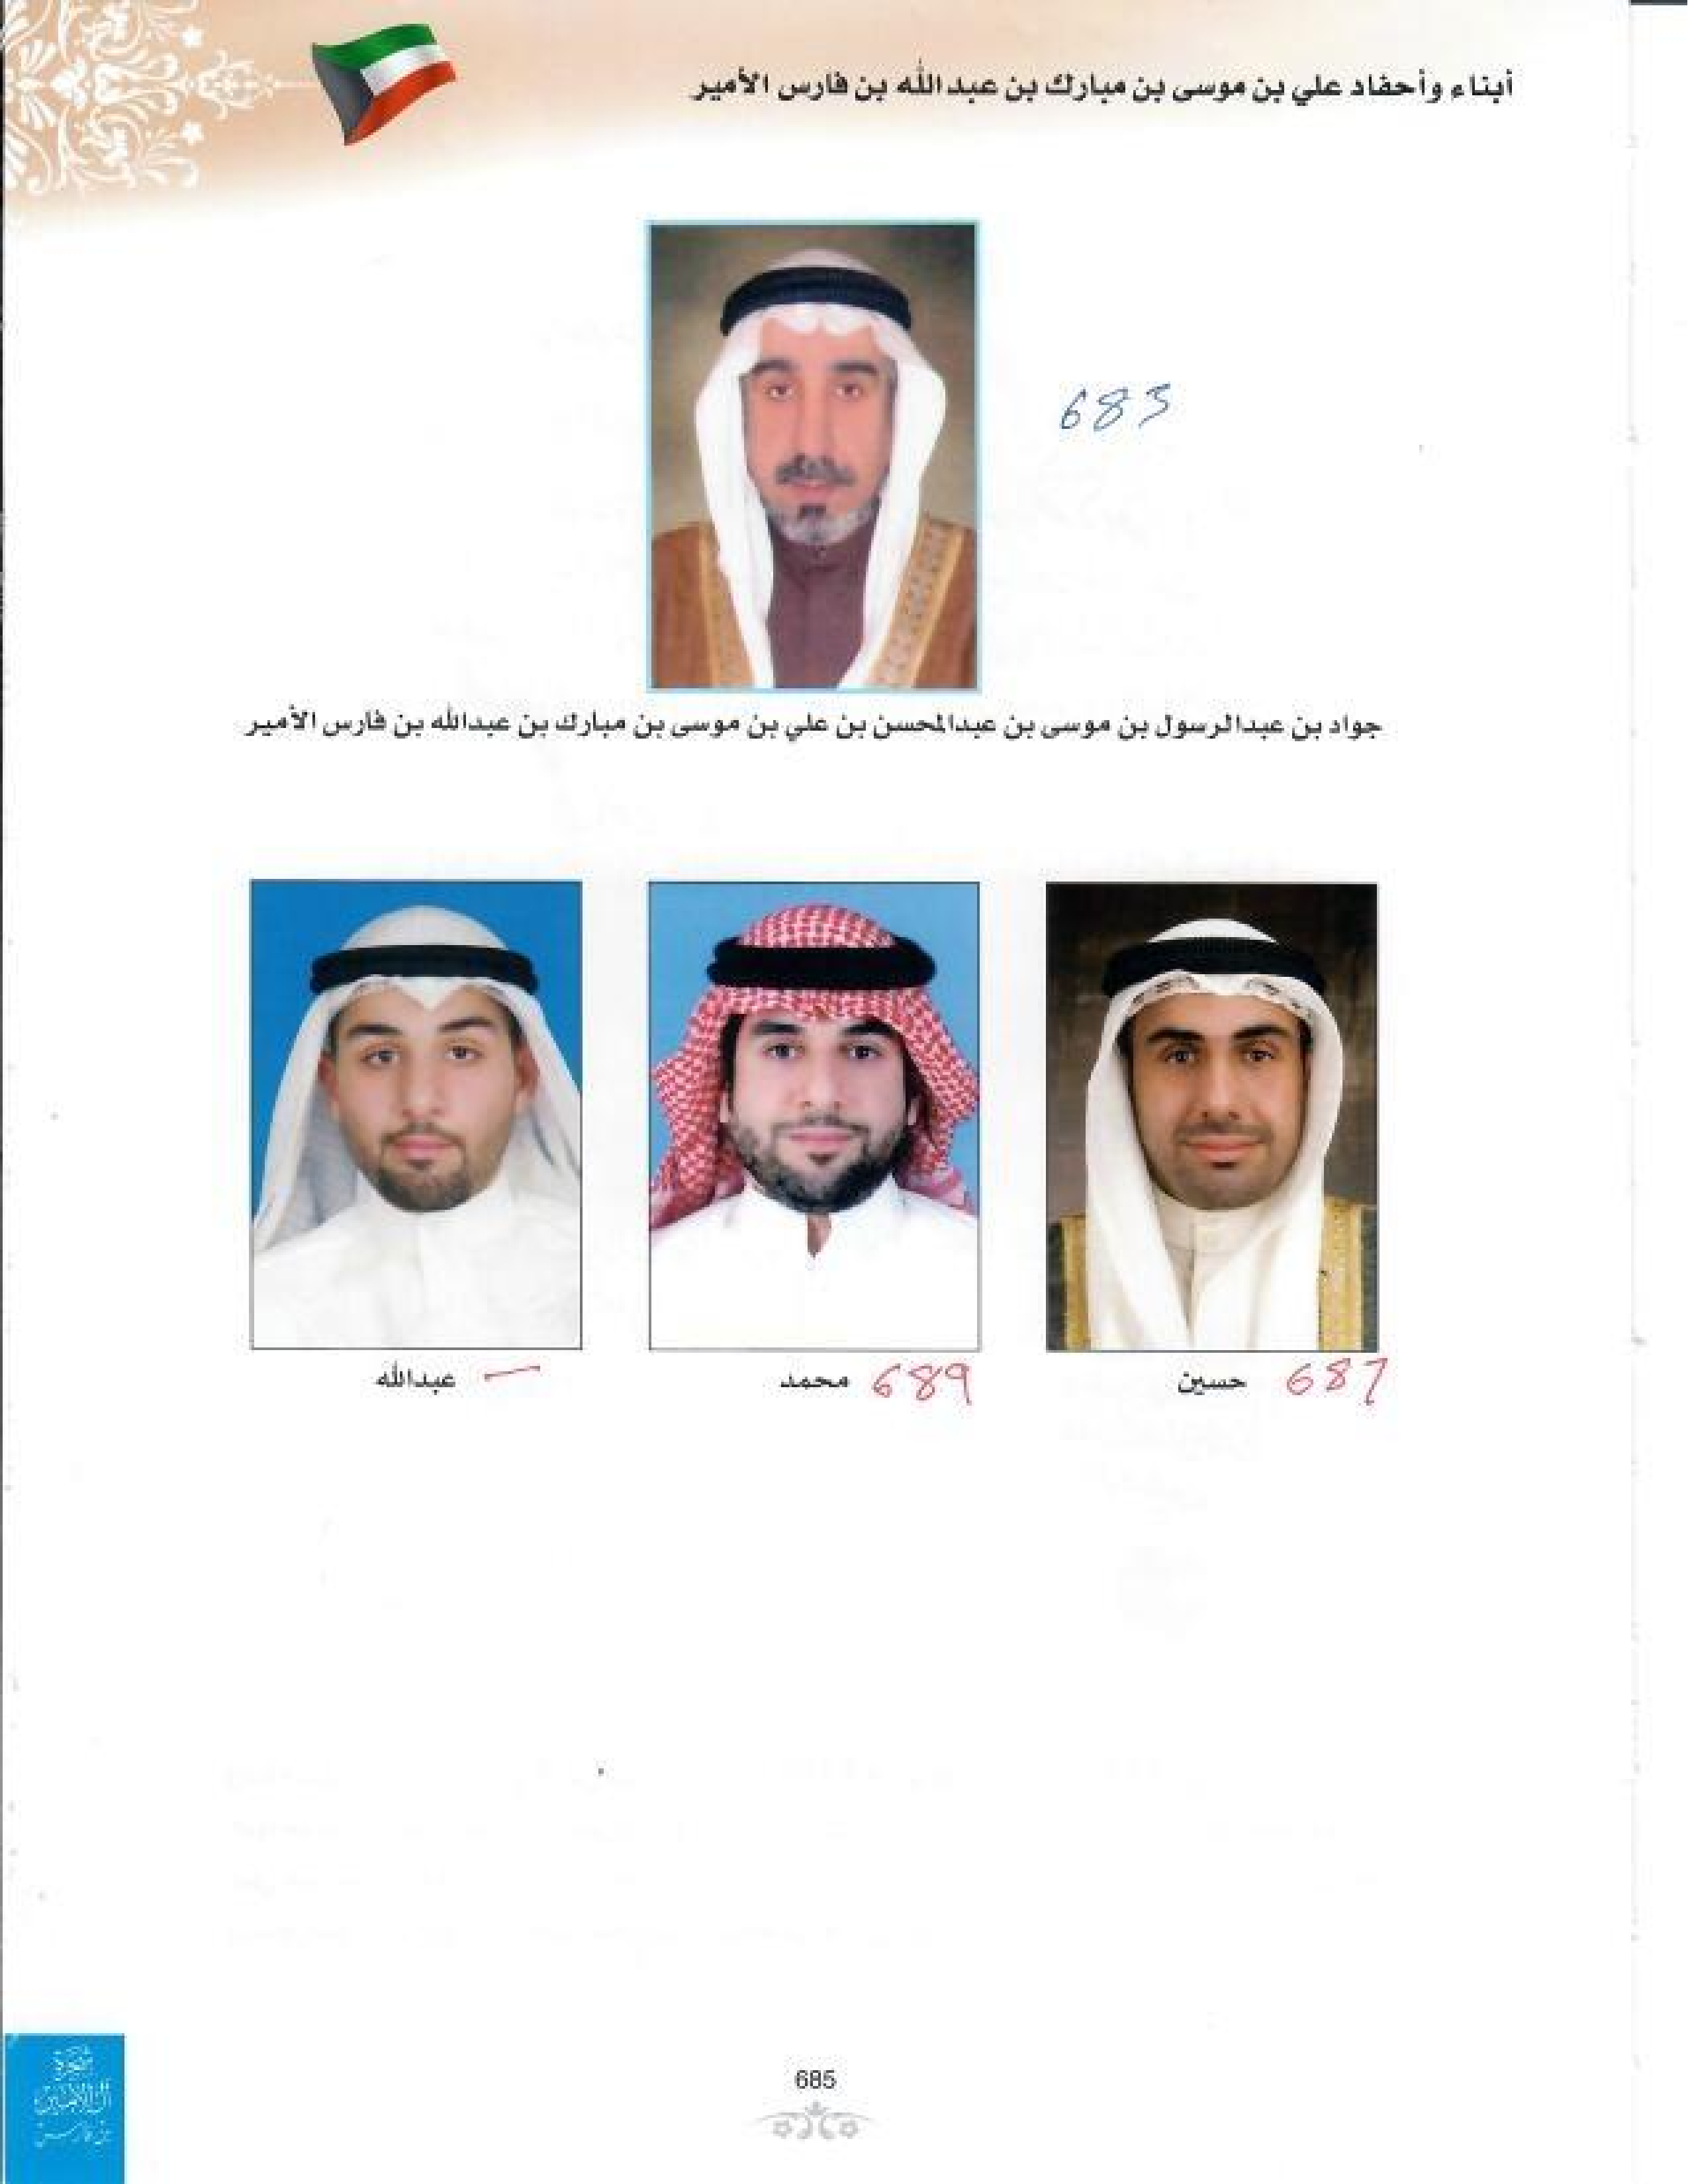 أبناء وأحفاد علي بن موسى بن مبارك بن عبد الله بن فارس الأمير
683
جواد بن عبدالرسول بن موسى بن عبدالمحسن بن علي بن موسى بن مبارك بن عبدالله بن فارس الأمير
687 حسين
689 محمد
عبدالله
685
شجرة
آل الأمير
بن فارس